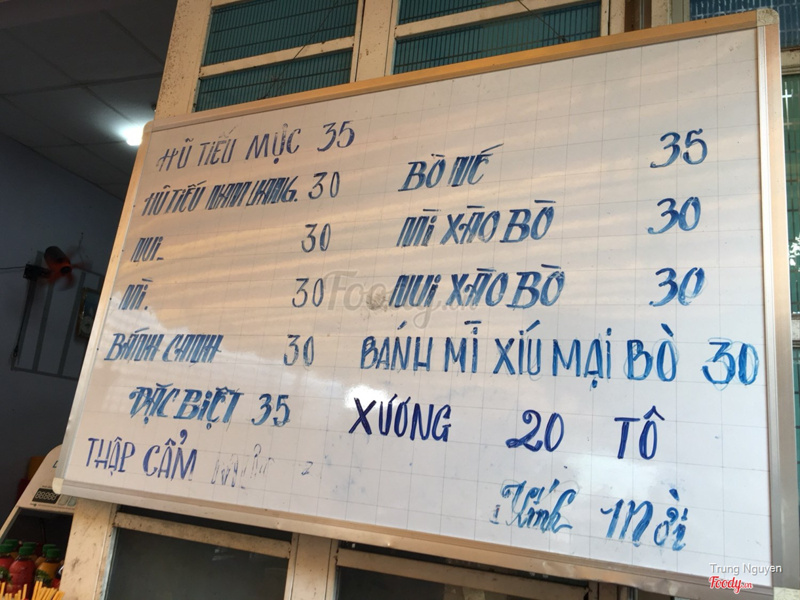 HŨ TIẾU MỰC 35
HŨ TIẾU NAM VANG. 30
NUI. 30
MÌ. 30
BÁNH CANH 30
ĐẶC BIỆT 35
THẬP CẨM
BÒ NÉ 35
MÌ XÀO BÒ 30
NUI XÀO BÒ 30
BÁNH MÌ XÍU MẠI BÒ 30
XƯƠNG 20 TÔ
Kính Mời
Foody.vn
Trung Nguyen
Foody.vn